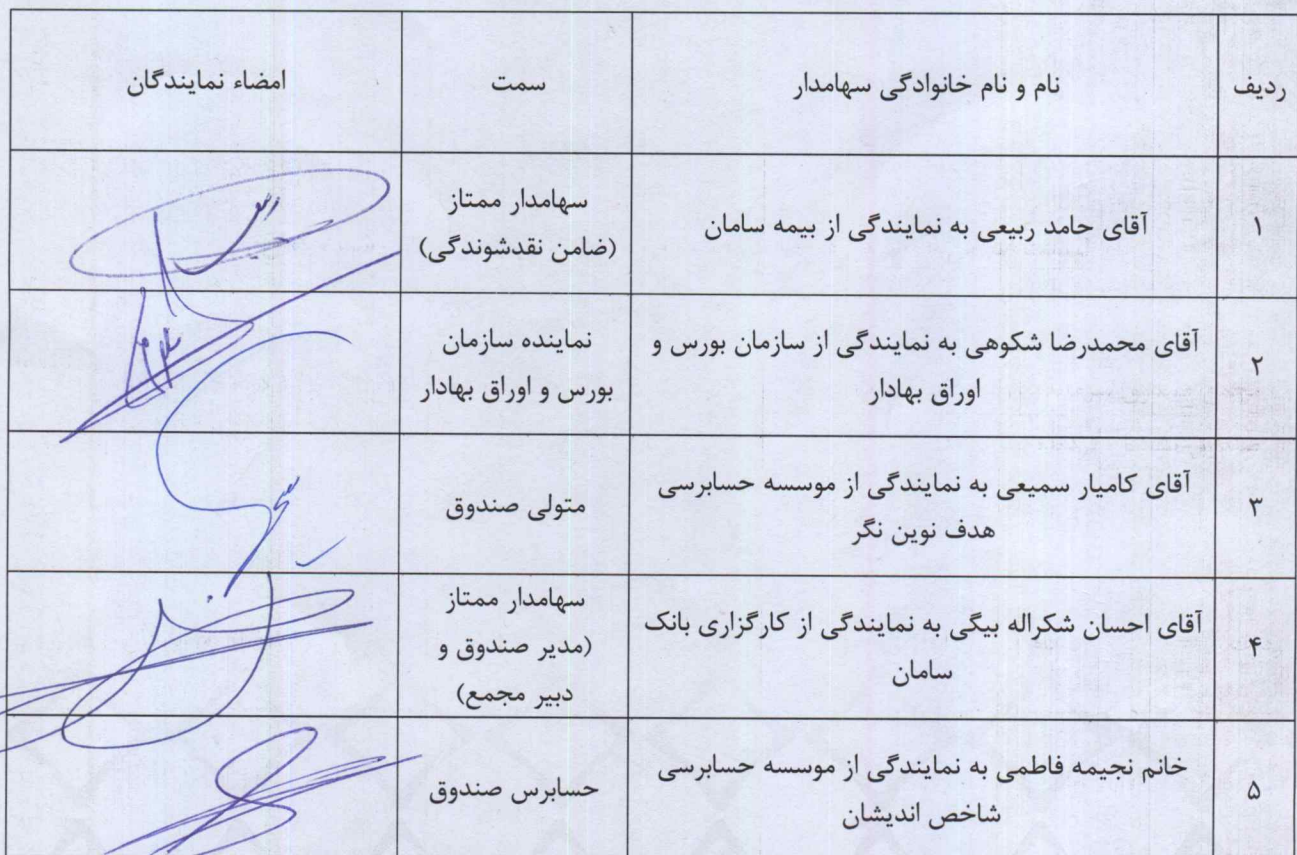 ردیف
نام و نام خانوادگی سهامدار
سمت
امضاء نمایندگان
۱
آقای حامد ربیعی به نمایندگی از بیمه سامان
سهامدار ممتاز
(ضامن نقدشوندگی)
۲
آقای محمدرضا شکوهی به نمایندگی از سازمان بورس و
اوراق بهادار
نماینده سازمان
بورس و اوراق بهادار
۳
آقای کامیار سمیعی به نمایندگی از موسسه حسابرسی
هدف نوین نگر
متولی صندوق
۴
آقای احسان شکراله بیگی به نمایندگی از کارگزاری بانک
سامان
سهامدار ممتاز
(مدیر صندوق و
دبیر مجمع)
۵
خانم نجیمه فاطمی به نمایندگی از موسسه حسابرسی
شاخص اندیشان
حسابرس صندوق